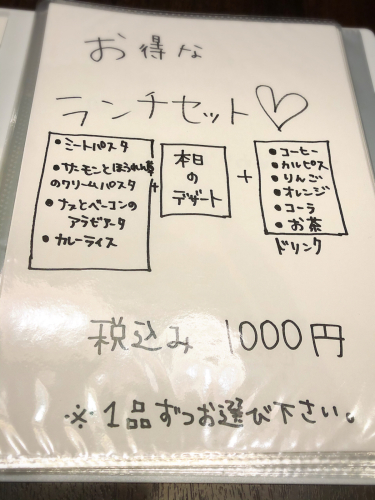 お得な
ランチセット♡
•ミートパスタ
•サーモンとほうれん草
のクリームパスタ
•ナスとベーコンの
アラビアータ
•カレーライス
+
本日
の
デザート
+
•コーヒー
•カルピス
•りんご
•オレンジ
•コーラ
•お茶
ドリンク
税込み 1000円
※1品ずつお選び下さい。